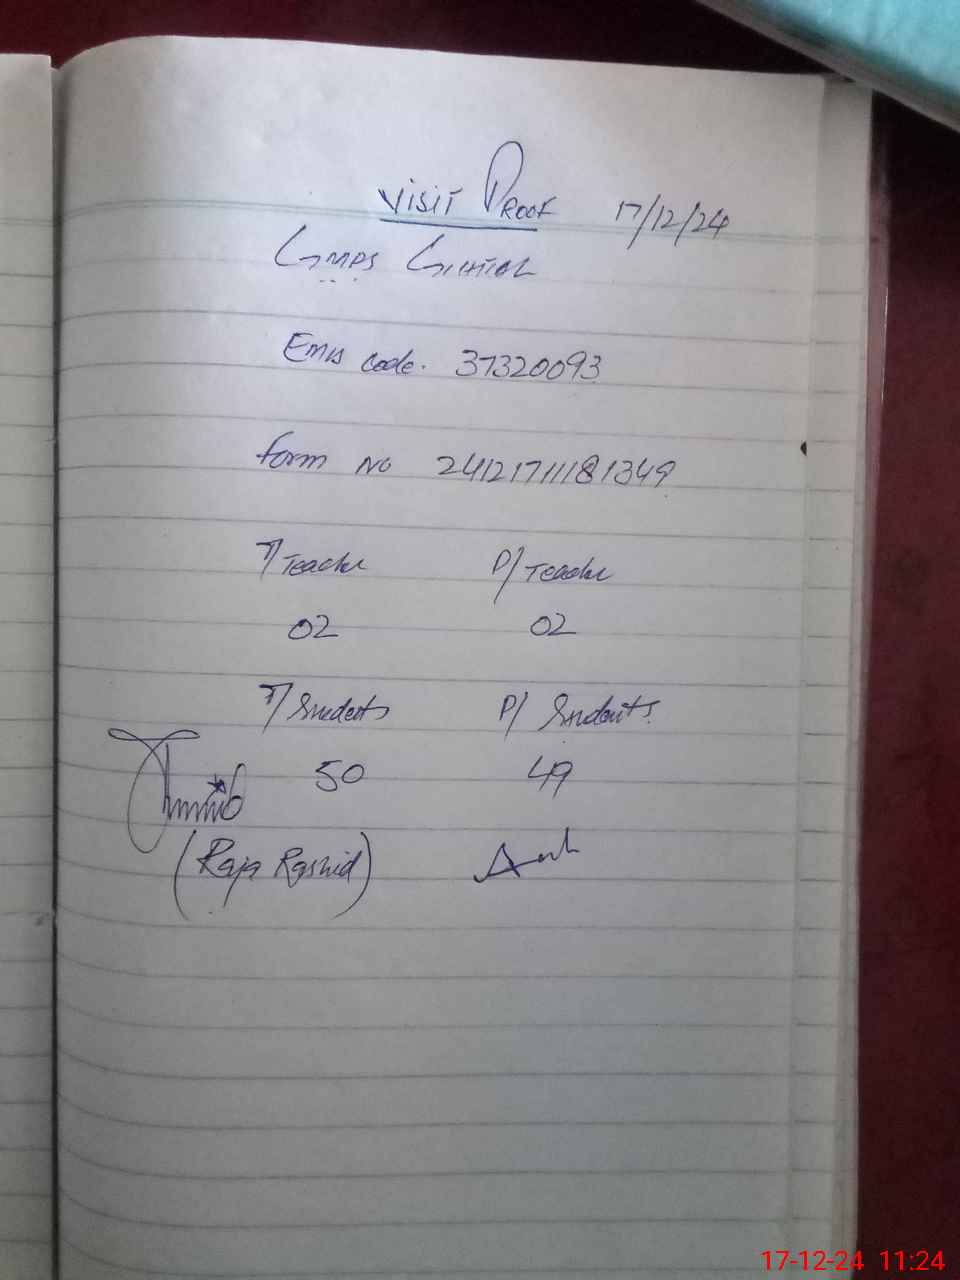 VISIT PROOF 17/12/24
GMPS
Emis code. 37320093
Form No 24121711181349
T/Teacher P/Teacher
02 02
T/Students P/Students
50 49
(Raja Rashid)
17-12-24 11:24